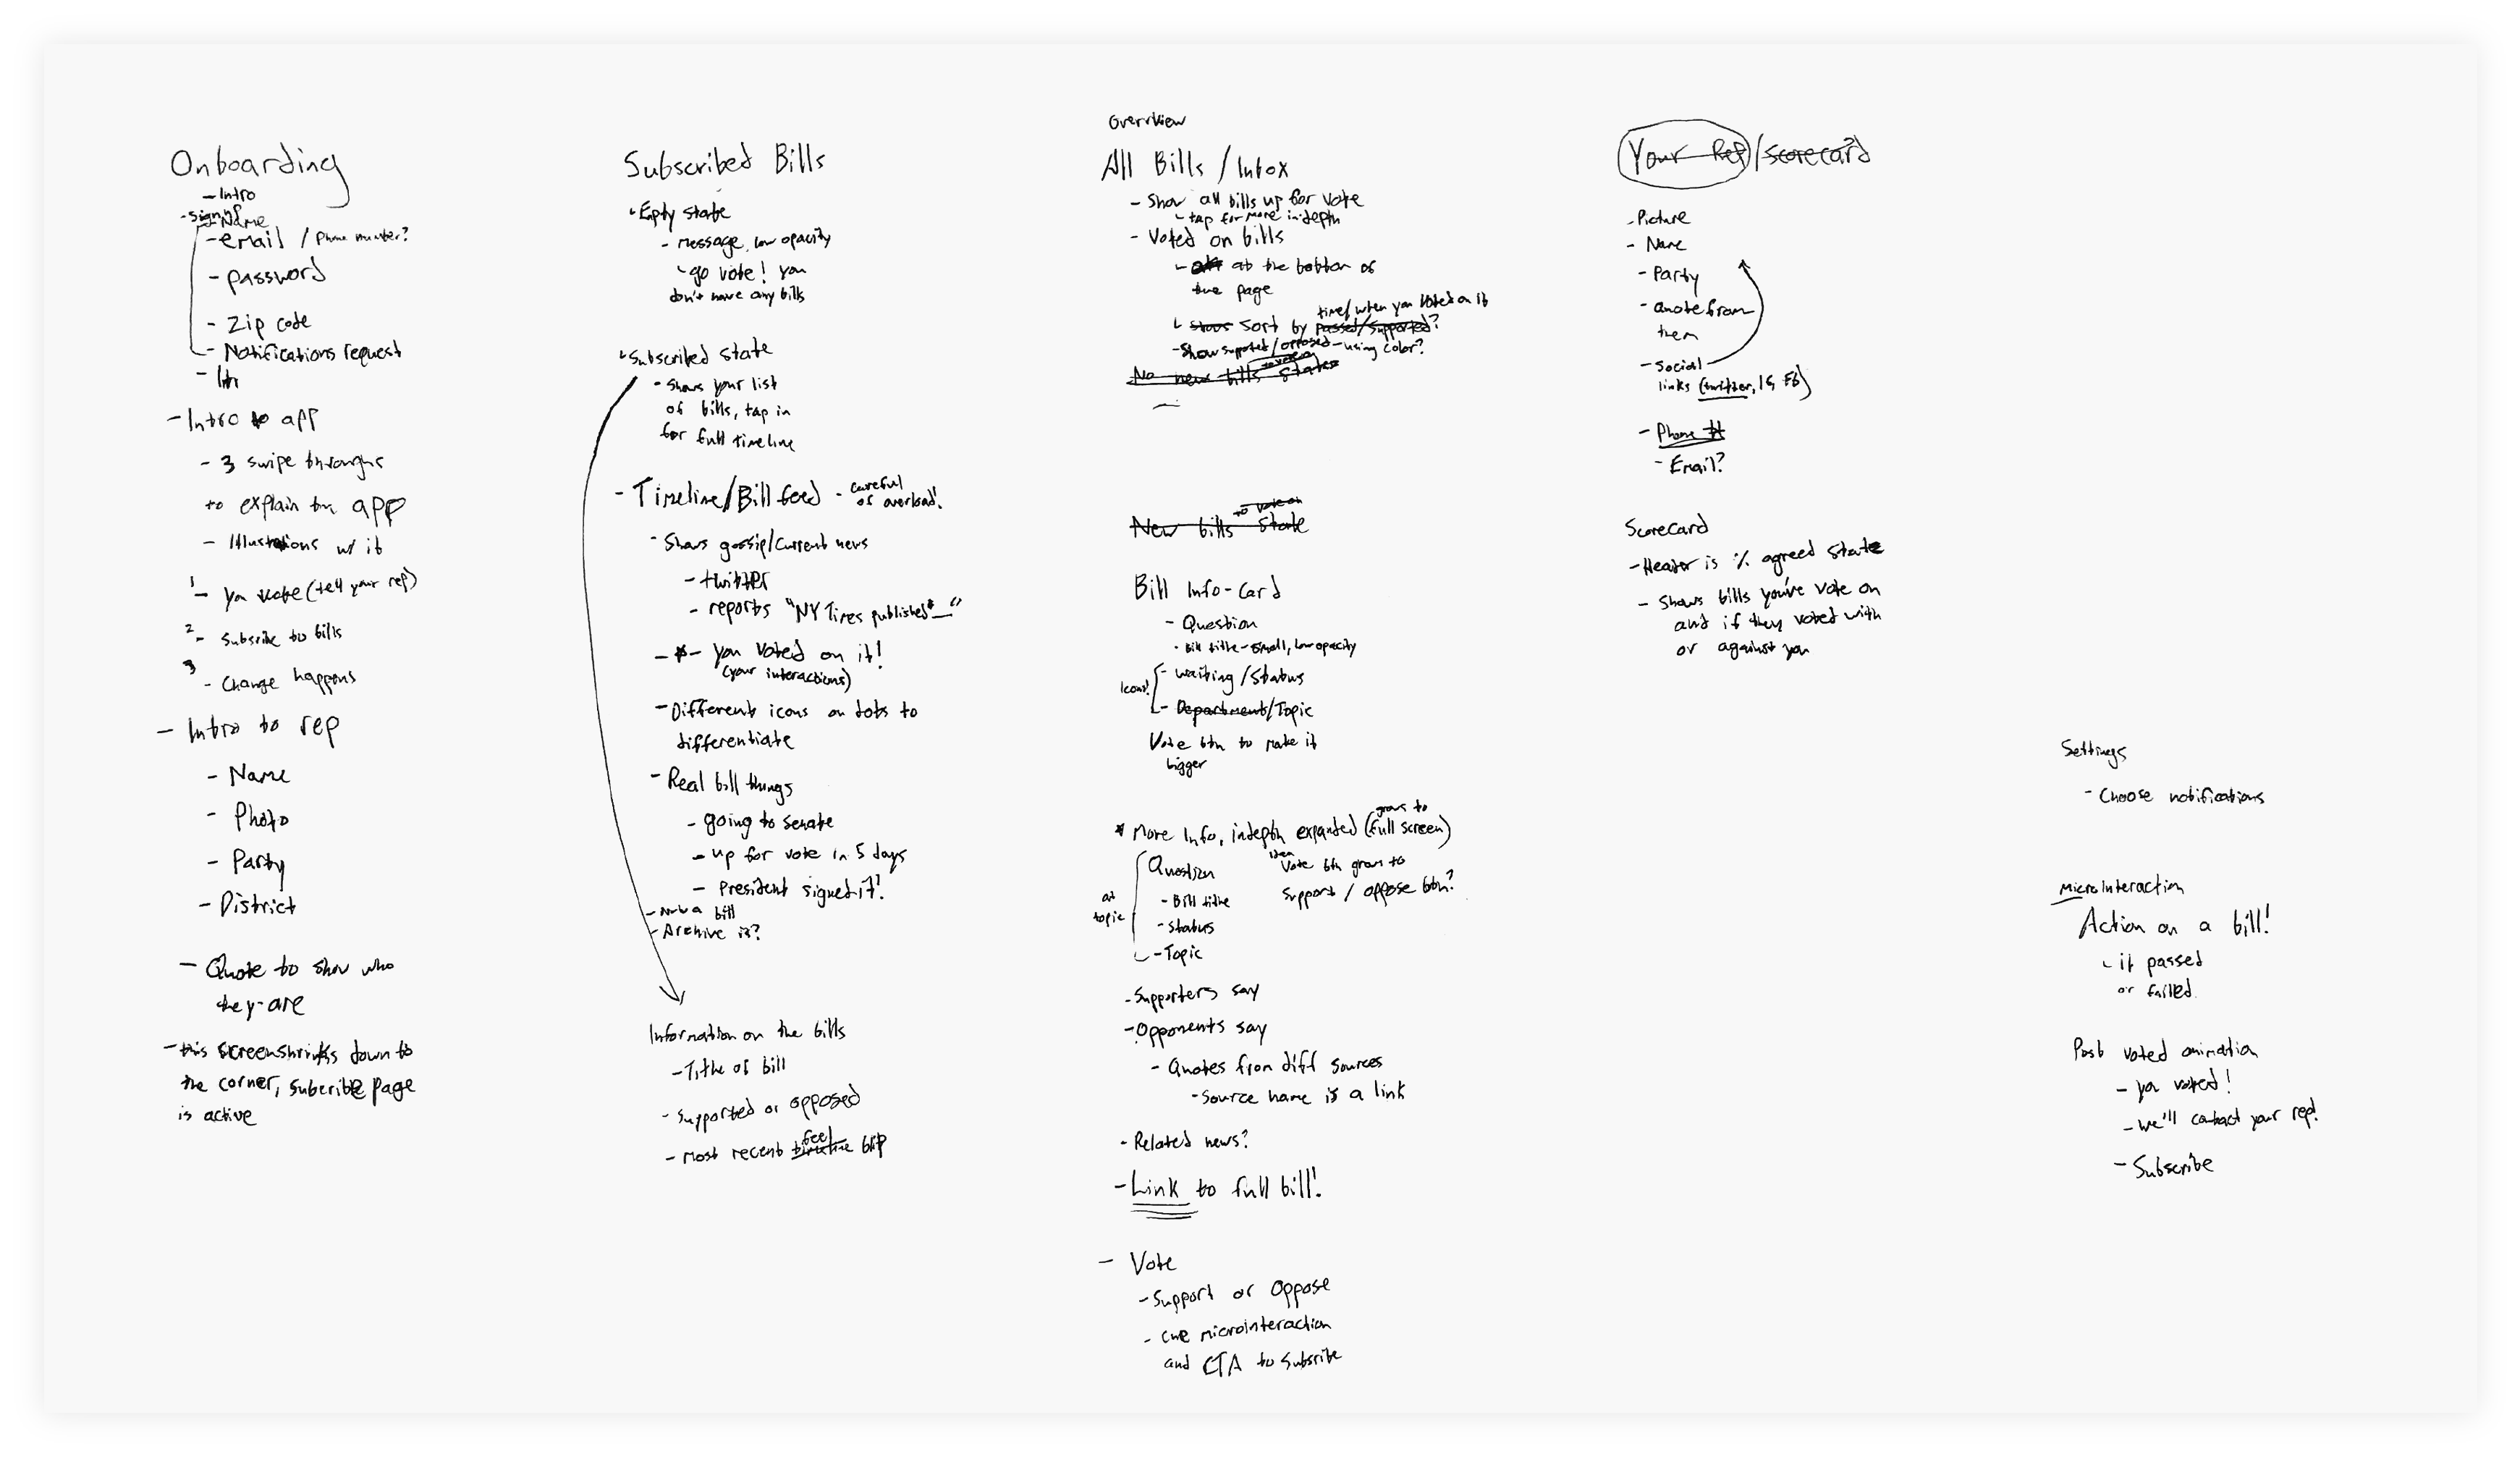 Onboarding
- Intro
- signup
- Name
- email / Phone number?
- password
- Zip code
- Notifications request
- Intro to app
- 3 swipe throughs
to explain the app
- Illustrations w/ it
1 - you vote (tell your rep)
2 - Subsribe to bills
3 - Change happens
- Intro to rep
- Name
- Photo
- Party
- District
- Quote to show who
they are
- this screen shrinks down to
the corner, subcribe page
is active
Subscribed Bills
Empty state
- message, low opacity
go vote! you
don't have any bills
Subscribed state
- Shows your list
of bills, tap in
for full timeline
- Timeline/Bill feed - careful
of overload!
- Shows gossip/current news
- twitter
- reports "NY Times published __"
- you voted on it!
(your interactions)
- Different icons on dots to
differentiate
- Real bill things
- going to senate
- up for vote in 5 days
- President signed it!
bill
- Archive it?
Information on the bills
- Title of bill
- Supported or opposed
feed
- most recent timeline blip
Overview
All Bills / Inbox
- Show all bills up for vote
tap for more in-depth
- Voted on bills
at the bottom of
the page
time/when you voted on it
Sort by passed/supported?
- Show supported/opposed - using color?
No new bills state
to vote on
New bills State
Bill Info-Card
- Question
- Bill title - small, low opacity
Icons!
- waiting/Status
- Department/Topic
Vote btn to make it
bigger
grows to
* More Info, indepth expanded (full screen)
at
topic
Question
- Bill title
- Status
- Topic
then
Vote btn grows to
support / oppose btn?
- Supporters say
- Opponents say
- Quotes from diff sources
- Source name is a link
- Related news?
- Link to full bill!
- Vote
- Support or Oppose
- cue microinteraction
and CTA to subsribe
Your Rep/Scorecard
- Picture
- Name
- Party
- Quote from
them
- Social
links (twitter, IG, FB)
- Phone #
- Email?
Scorecard
- Header is % agreed state
- Shows bills you've vote on
and if they voted with
or against you
Settings
- Choose notifications
Microinteraction
Action on a bill!
it passed
or failed
Post voted animation
- you voted!
- we'll contact your rep!
- Subscribe